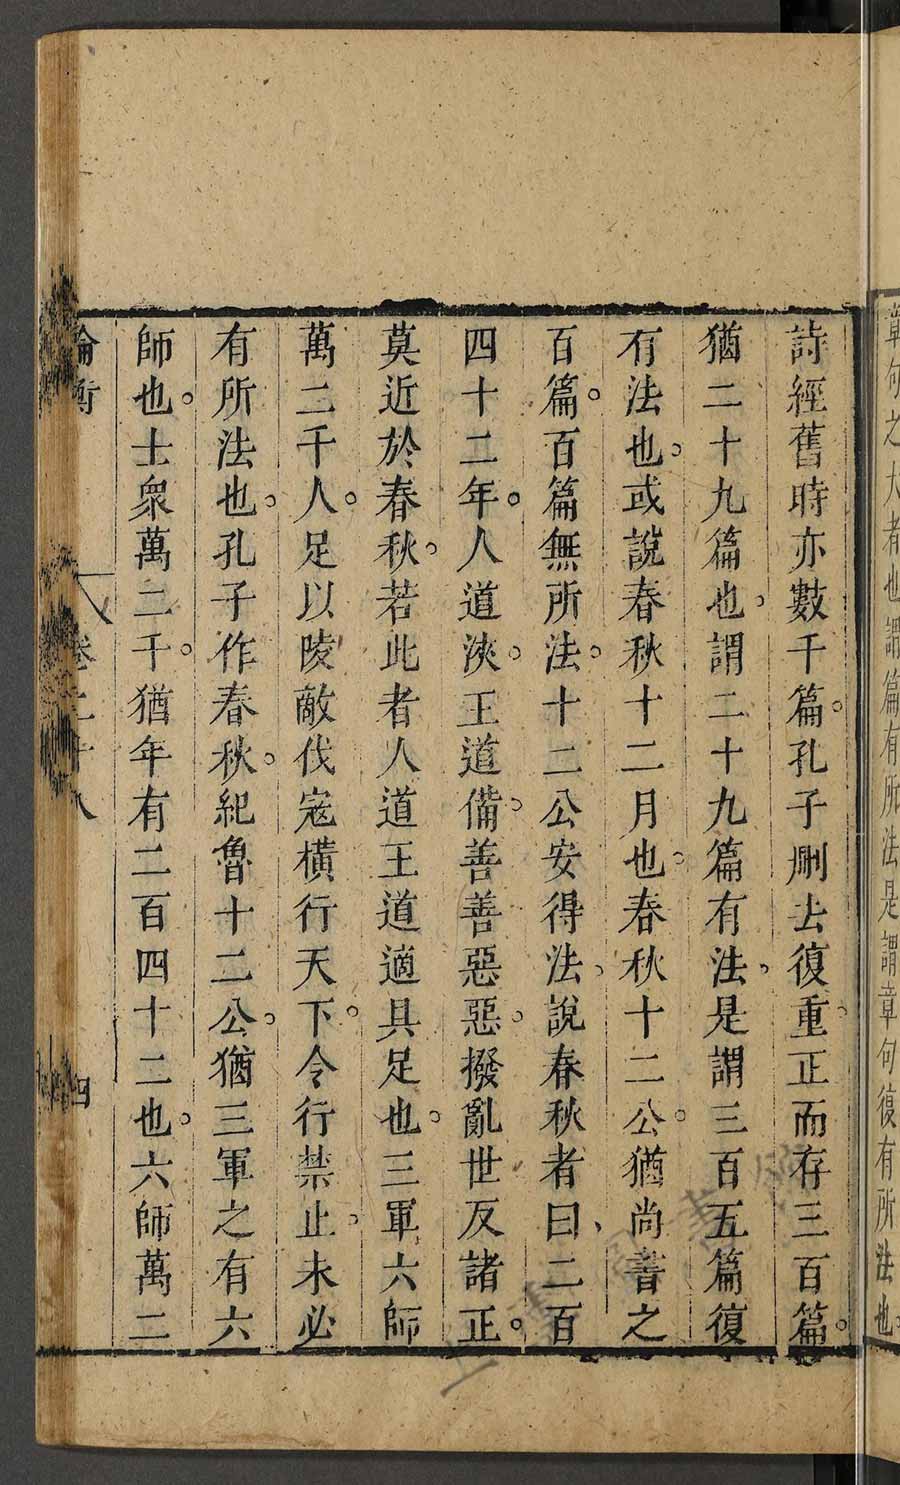 章句之大者也謂篇有所法是謂章句復有所法也
詩經舊時亦數千篇。孔子刪去復重正而存三百篇。
猶二十九篇也謂二十九篇有法是謂三百五篇復
有法也。或說春秋十二月也。春秋十二公。猶尚書之
百篇。百篇無所法。十二公安得法說春秋者曰、二百
四十二年。人道浹。王道備。善善惡惡。撥亂世反諸正。
莫近於春秋。若此者人道王道適具足也。三軍六師
萬二千人。足以陵敵伐寇橫行天下。令行禁止。未必
有所法也。孔子作春秋。紀魯十二公。猶三軍之有六
師也。士眾萬二千。猶年有二百四十二也。六師萬二
論衡 卷二十八 四